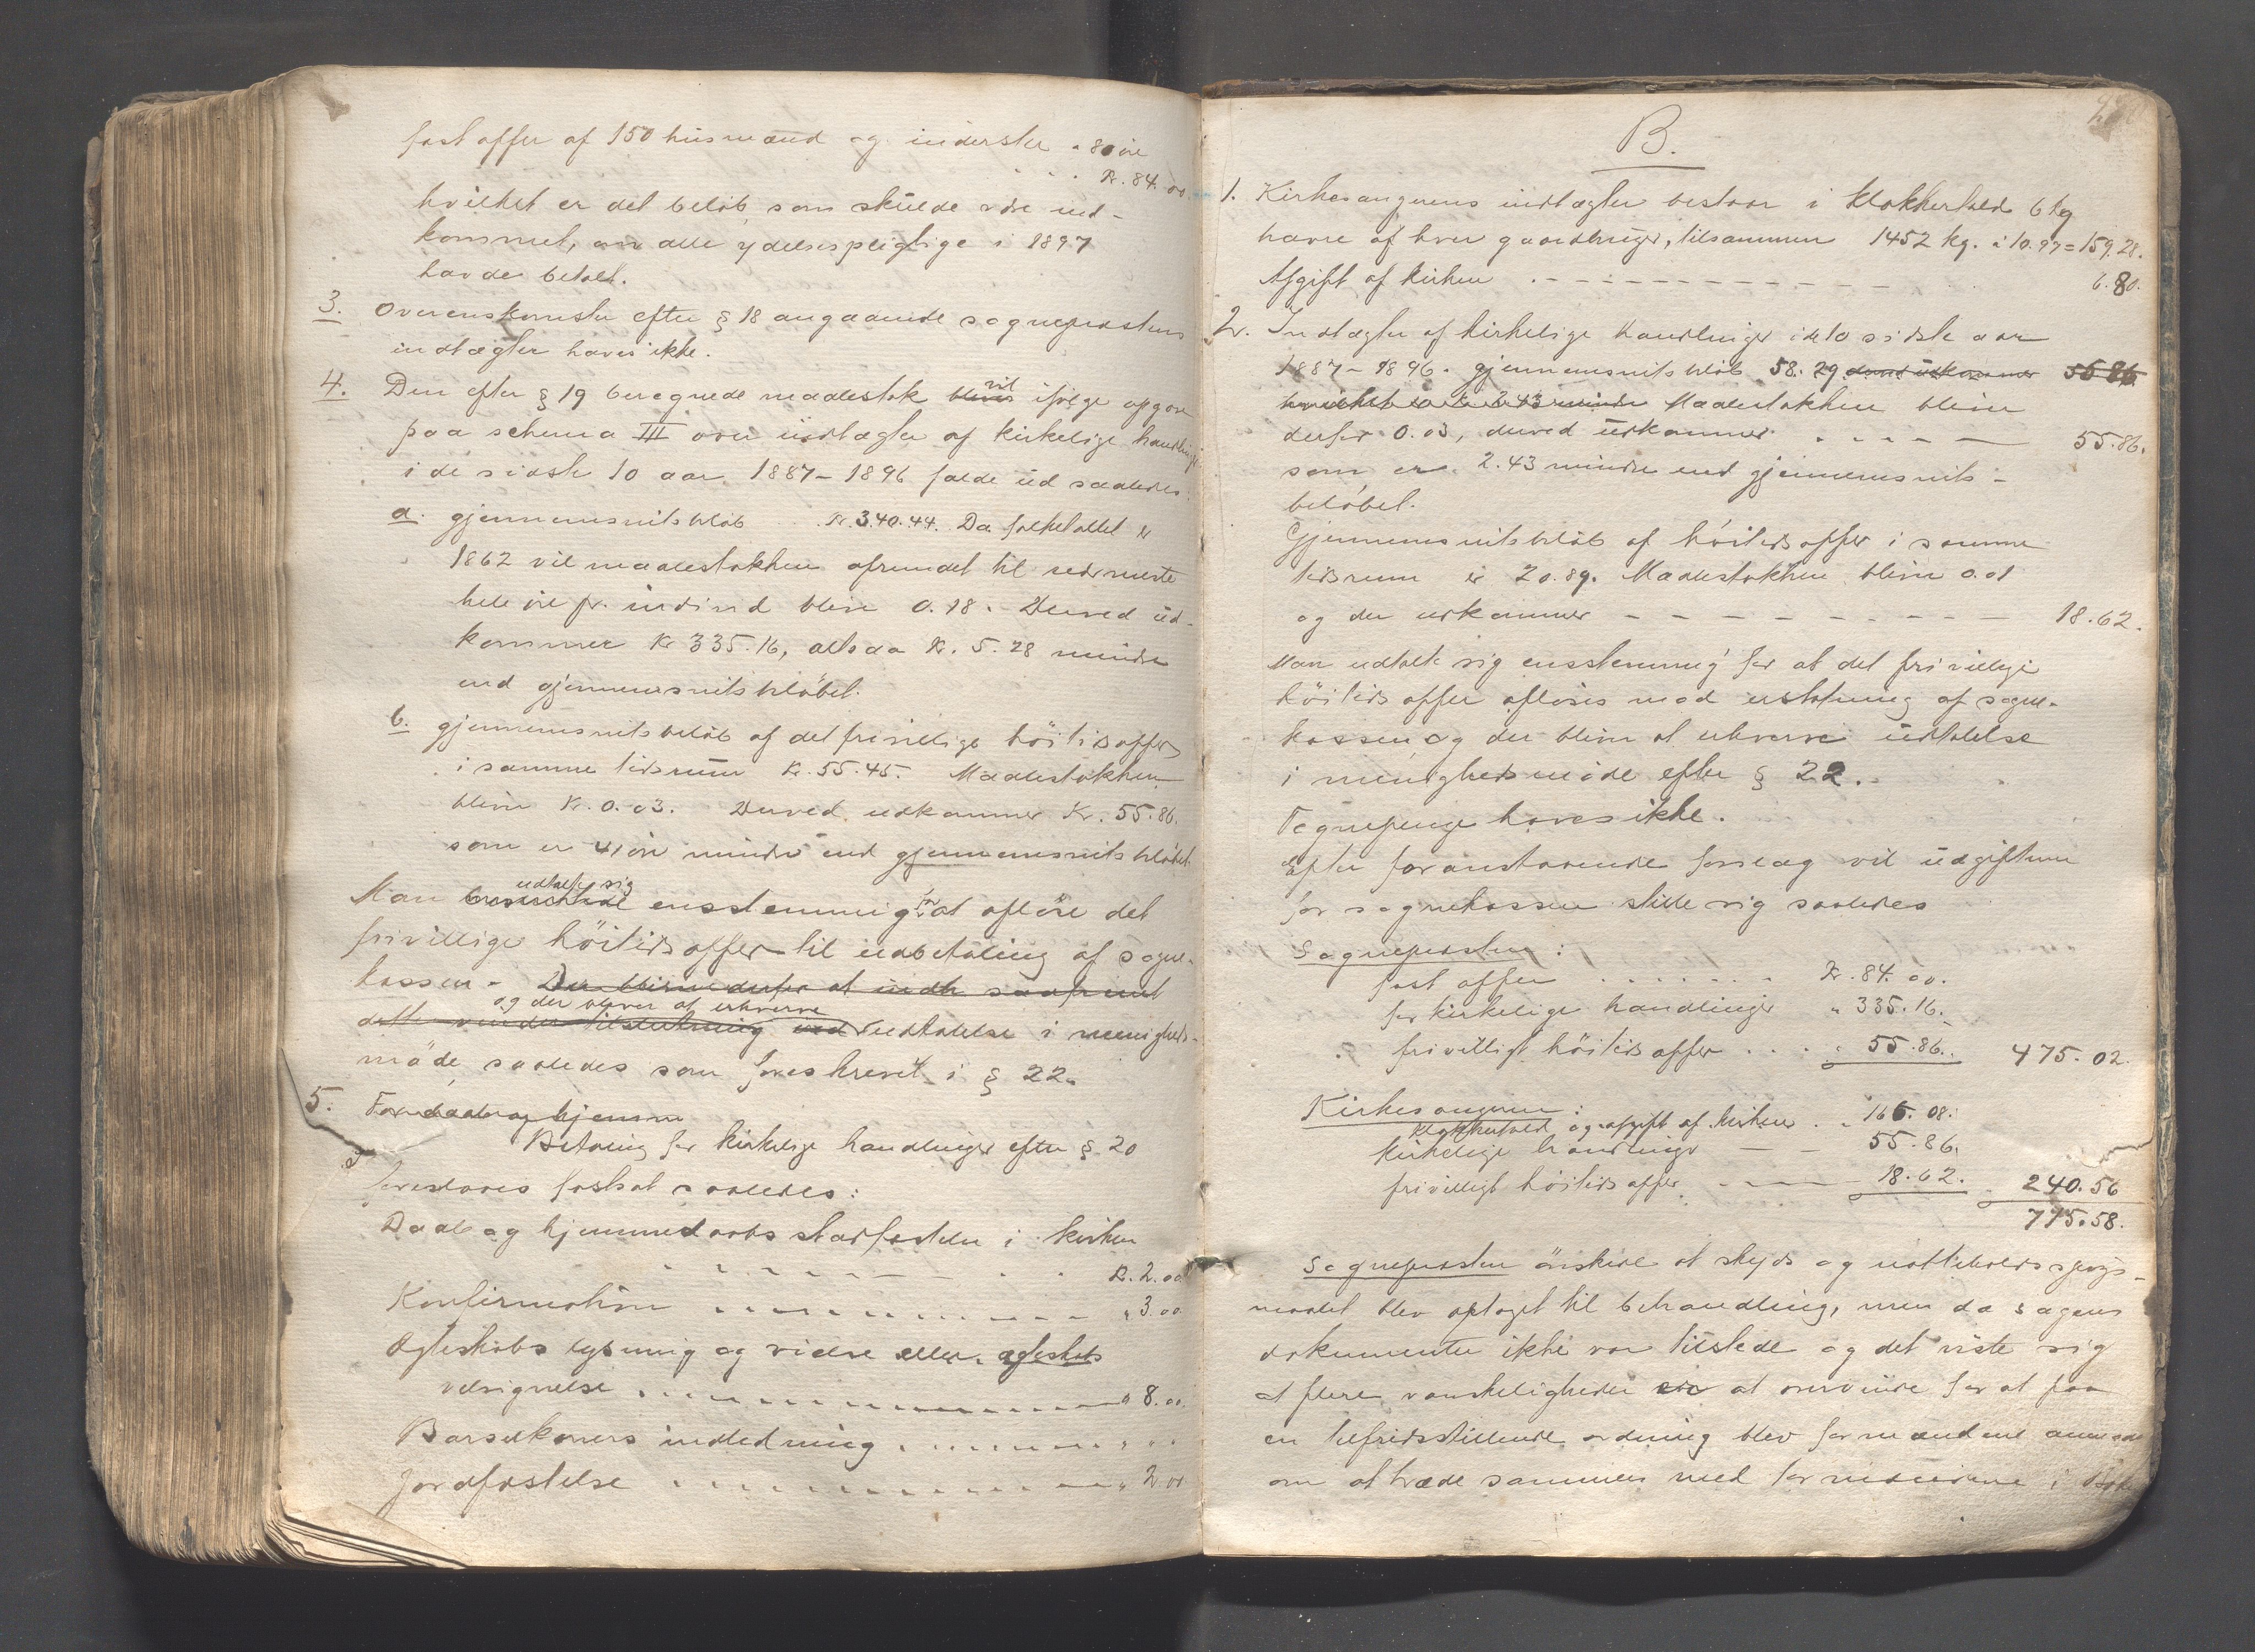 fast offer af 150 husmænd og inderster a 80 öre
. . . Kr. 84.00
hvilket er det beløb, som skulde være ind-
kommet, om alle ydelsespligtige i 1897
havde betalt.
3. Overenskomster efter § 18 angaaende sogneprestens
indtægter haves ikke.
4. Den efter § 19 beregnede maalestok bliver vil ifølge opgave
paa schema III over indtægter af kirkelige handlinger
i de sidste 10 aar 1887–1896 falde ud saaledes:
a. gjennemsnitsbeløb . . Kr. 340.44. Da folketallet er
1862 vil maalestokken afrundet til nærmeste
hele öre pr. individ blive 0.18. Derved ud-
kommer Kr 335.16, altsaa Kr. 5.28 mindre
end gjennemsnitsbeløbet.
b. gjennemsnitsbeløb af det frivillige höitidsoffer
i samme tidsrum Kr. 55.45. Maalestokken
bliver Kr. 0.03. Derved udkommer Kr. 55.86.
som er 41 öre mindre end gjennemsnitsbeløbet.
udtalte sig
Man besluttede enstemmig for at afløse det
frivillige höitidsoffer til udbetaling af sogne-
kassen. Der bliver derfor at
og der bliver at erhverve
dette under tilslutning ved udtalelse i menigheds-
møde, saaledes som foreskrevet i § 22.
5. For daab og hjemme
Betaling for kirkelige handlinger efter § 20
foreslaaes fastsat saaledes:
Daab og hjemmedaabs stadfæstelse i kirken
Kr. 2.00
Konfirmation " 3.00
Ægteskabs lysning og vielse eller ægteskabs
velsignelse " 8.00
Barselkoners indledning " " "
Jordfæstelse " 2.00
B.
1. Kirkesangerens indtægter bestaar i klokkertold 6 kg
havre af hver gaardbruger, tilsammen 1452 kg. à 10.97 = 159.28.
Afgift af kirken 6.80.
2. Indtægter af kirkelige handlinger i de 10 sidste aar
1887–1896. gjennemsnitsbeløb 58.29 derved udkommer 55 86
hvilket er 2.43 mindre Maalestokken bliver
derfor 0.03, derved udkommer 55.86.
som er 2.43 mindre end gjennemsnits-
beløbet.
Gjennemsnitsbeløb af höitidsoffer i samme
tidsrum er 20.89. Maalestokken bliver 0.01
og der udkommer 18.62.
Man udtalte sig enstemmig for at det frivillige
höitidsoffer afløses mod erstatning af sogne-
kassen og der bliver at erhverve udtalelse
i menighedsmøde efter § 22.
Tegnepenge haves ikke.
Efter foranstaaende forslag vil udgifterne
for sognekassen stille sig saaledes
Sognepresten:
fast offer . . . . . . . Kr. 84.00.
for kirkelige handlinger " 335.16.
frivilligt höitidsoffer . . . " 55.86. 475.02.
Kirkesangeren:
klokkertold og afgift af kirken . " 166.08.
kirkelige handlinger 55.86.
frivilligt höitidsoffer 18.62. 240.56
715.58.
Sognepresten ønskede at skyds og nattehold spørgs-
maalet blev optaget til behandling, men da sagens
dokumenter ikke var tilstede og det viste sig
at flere vanskeligheder var at overvinde for at faa
en tilfredsstillende ordning blev formændene anmodet
om at træde sammen med formændene i